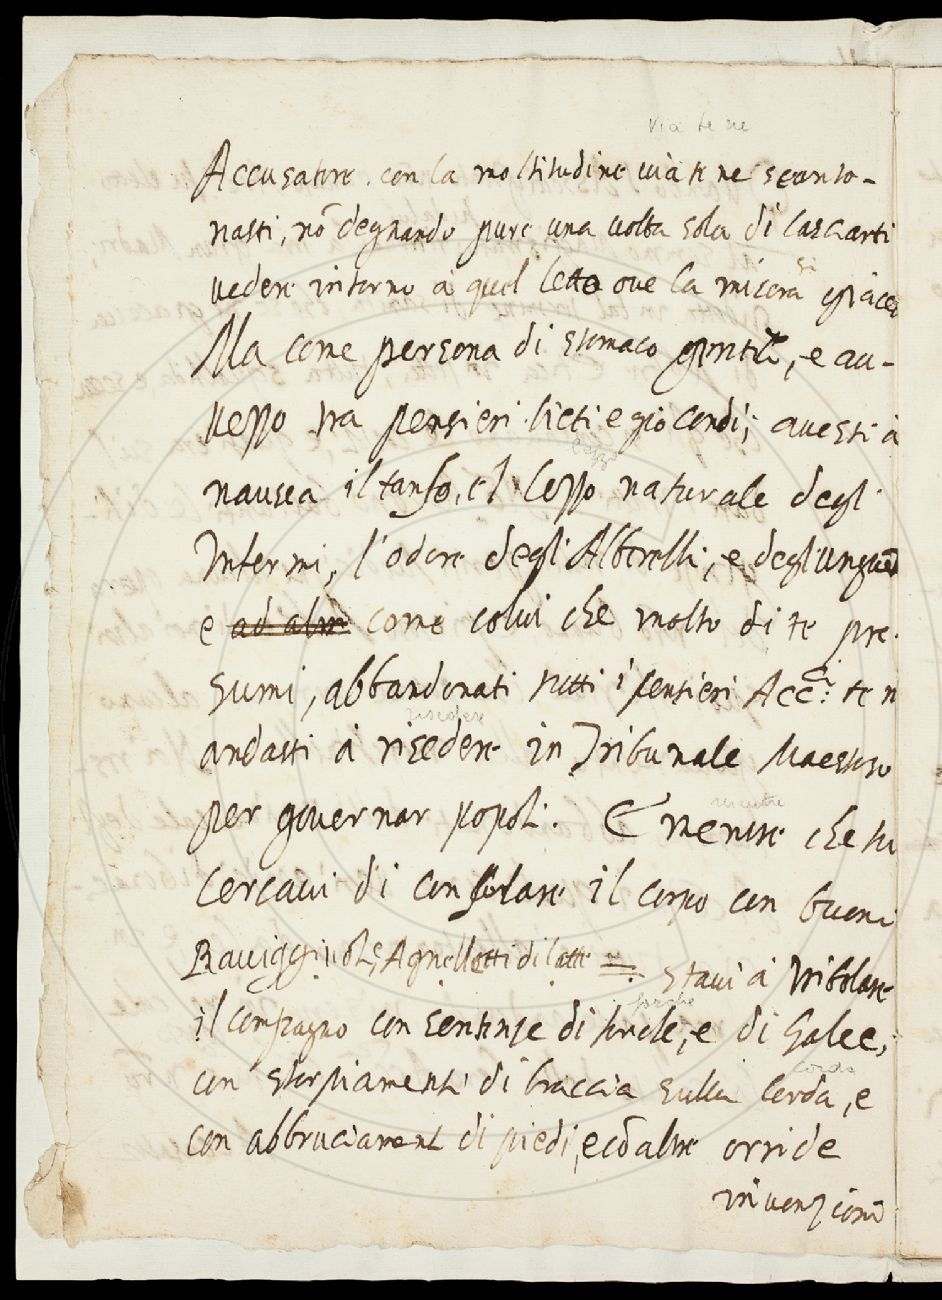 via te ne
Accusatore con la moltitudine via te ne scanto-
nasti, nõ degnando pure una volta sola di lasciarti
vedere intorno à quel letto ove la misera si giacea
Ma come persona di stomaco gentile, e au-
vezzo tra pensieri lieti e giocondi; avesti à
lezzo
nausea il tanfo, e'l lezzo naturale degl'
Infermi, l'odore degli Alberelli, e degl'unguẽ
e ad altre come colui che molto di te pre-
sumi, abbandonati tutti i pensieri Acc.ci te n
risedere
andasti à risedere in Tribunale Maestoso
mentre
per governar popoli. E mentre che tu
cercavi di consolare il corpo con buoni
Raviggiuoli, Agnellotti di latte = stavi à tribolare
forche
il compagno con sentenze di forche, e di Galee,
corda
con storpiamenti di braccia sulla Corda, e
con abbruciament di piedi, e cõ altre orride
invenzioni